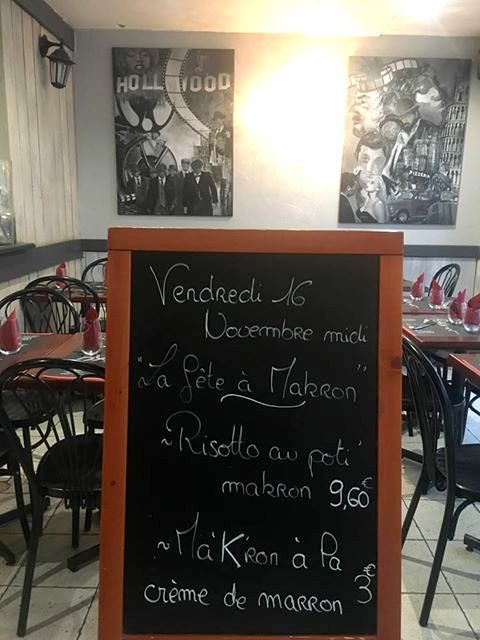 HOLLYWOOD
PIZZERIA
Vendredi 16
Novembre midi
"La fête à Makron"
~Risotto au poti'
makron 9,60€
~Mà'K'Ron à Pa
crème de marron 3€